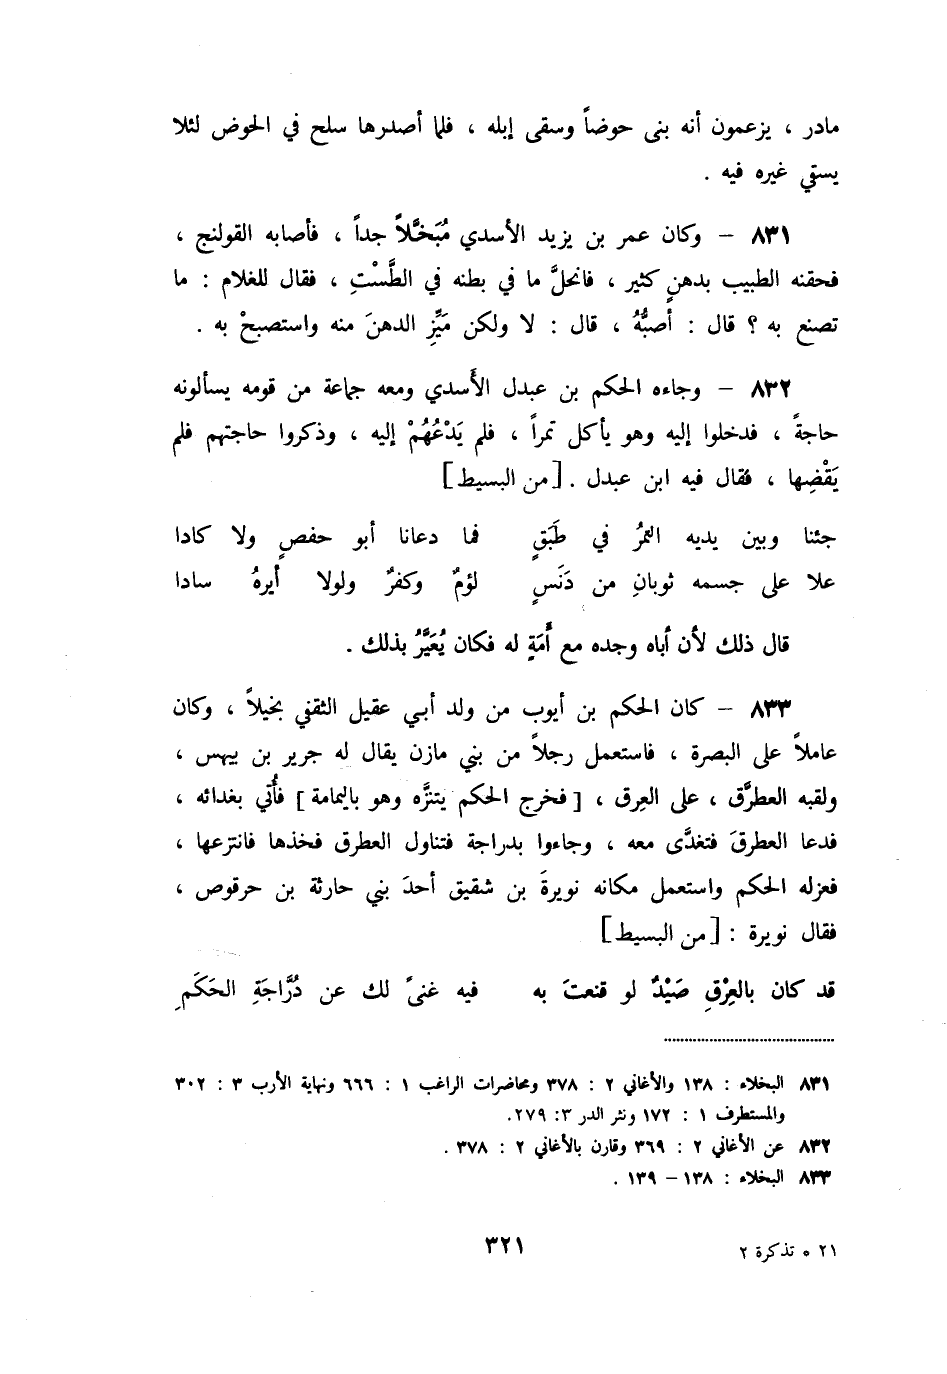 مادر ، يزعمون أنه بنى حوضاً وسقى إبله ، فلما أصدرها سلح في الحوض لئلا
يستقي غيره فيه .
٨٣١ – وكان عمر بن يزيد الأسدي مُبَخَّلاً جداً ، فأصابه القولنج ،
فحقنه الطبيب بدهنٍ كثير ، فانحلَّ ما في بطنه في الطَّسْتِ ، فقال للغلام : ما
تصنع به ؟ قال : أصبُّهُ ، قال : لا ولكن مَيِّزِ الدهنَ منه واستصبحْ به .
٨٣٢ – وجاءه الحكم بن عبدل الأَسدي ومعه جماعة من قومه يسألونه
حاجةً ، فدخلوا إليه وهو يأكل تمراً ، فلم يَدْعُهُمْ إليه ، وذكروا حاجتهم فلم
يَقْضِها ، فقال فيه ابن عبدل . [من البسيط]
جئنا وبين يديه التمرُ في طَبَقٍ فما دعانا أبو حفصٍ ولا كادا
علا على جسمه ثوبانِ من دَنَسٍ لؤمٌ وكفرٌ ولولا أيرهُ سادا
قال ذلك لأن أباه وجده مع أَمَةٍ له فكان يُعَيَّرُ بذلك .
٨٣٣ – كان الحكم بن أيوب من ولد أبي عقيل الثقفي بخيلاً ، وكان
عاملاً على البصرة ، فاستعمل رجلاً من بني مازن يقال له جرير بن بيهس ،
ولقبه العطرَّق ، على العِرق ، [فخرج الحكم يتنزَّه وهو باليمامة] فأُتي بغدائه ،
فدعا العطرقَ فتغدَّى معه ، وجاءوا بدراجة فتناول العطرق فخذها فانتزعها ،
فعزله الحكم واستعمل مكانه نويرةَ بن شقيق أحدَ بني حارثة بن حرقوص ،
فقال نويرة : [من البسيط]
قد كان بالعِرْقِ صَيْدٌ لو قنعتَ به فيه غنىً لك عن دُرَّاجَةِ الحَكَمِ
٨٣١ البخلاء : ١٣٨ والأغاني ٢ : ٣٧٨ ومحاضرات الراغب ١ : ٦٦٦ ونهاية الأرب ٣ : ٣٠٢
والمستطرف ١ : ١٧٢ ونثر الدر ٣: ٢٧٩.
٨٣٢ عن الأغاني ٢ : ٣٦٩ وقارن بالأغاني ٢ : ٣٧٨ .
٨٣٣ البخلاء : ١٣٨ – ١٣٩ .
٢١ * تذكرة ٢ ٣٢١